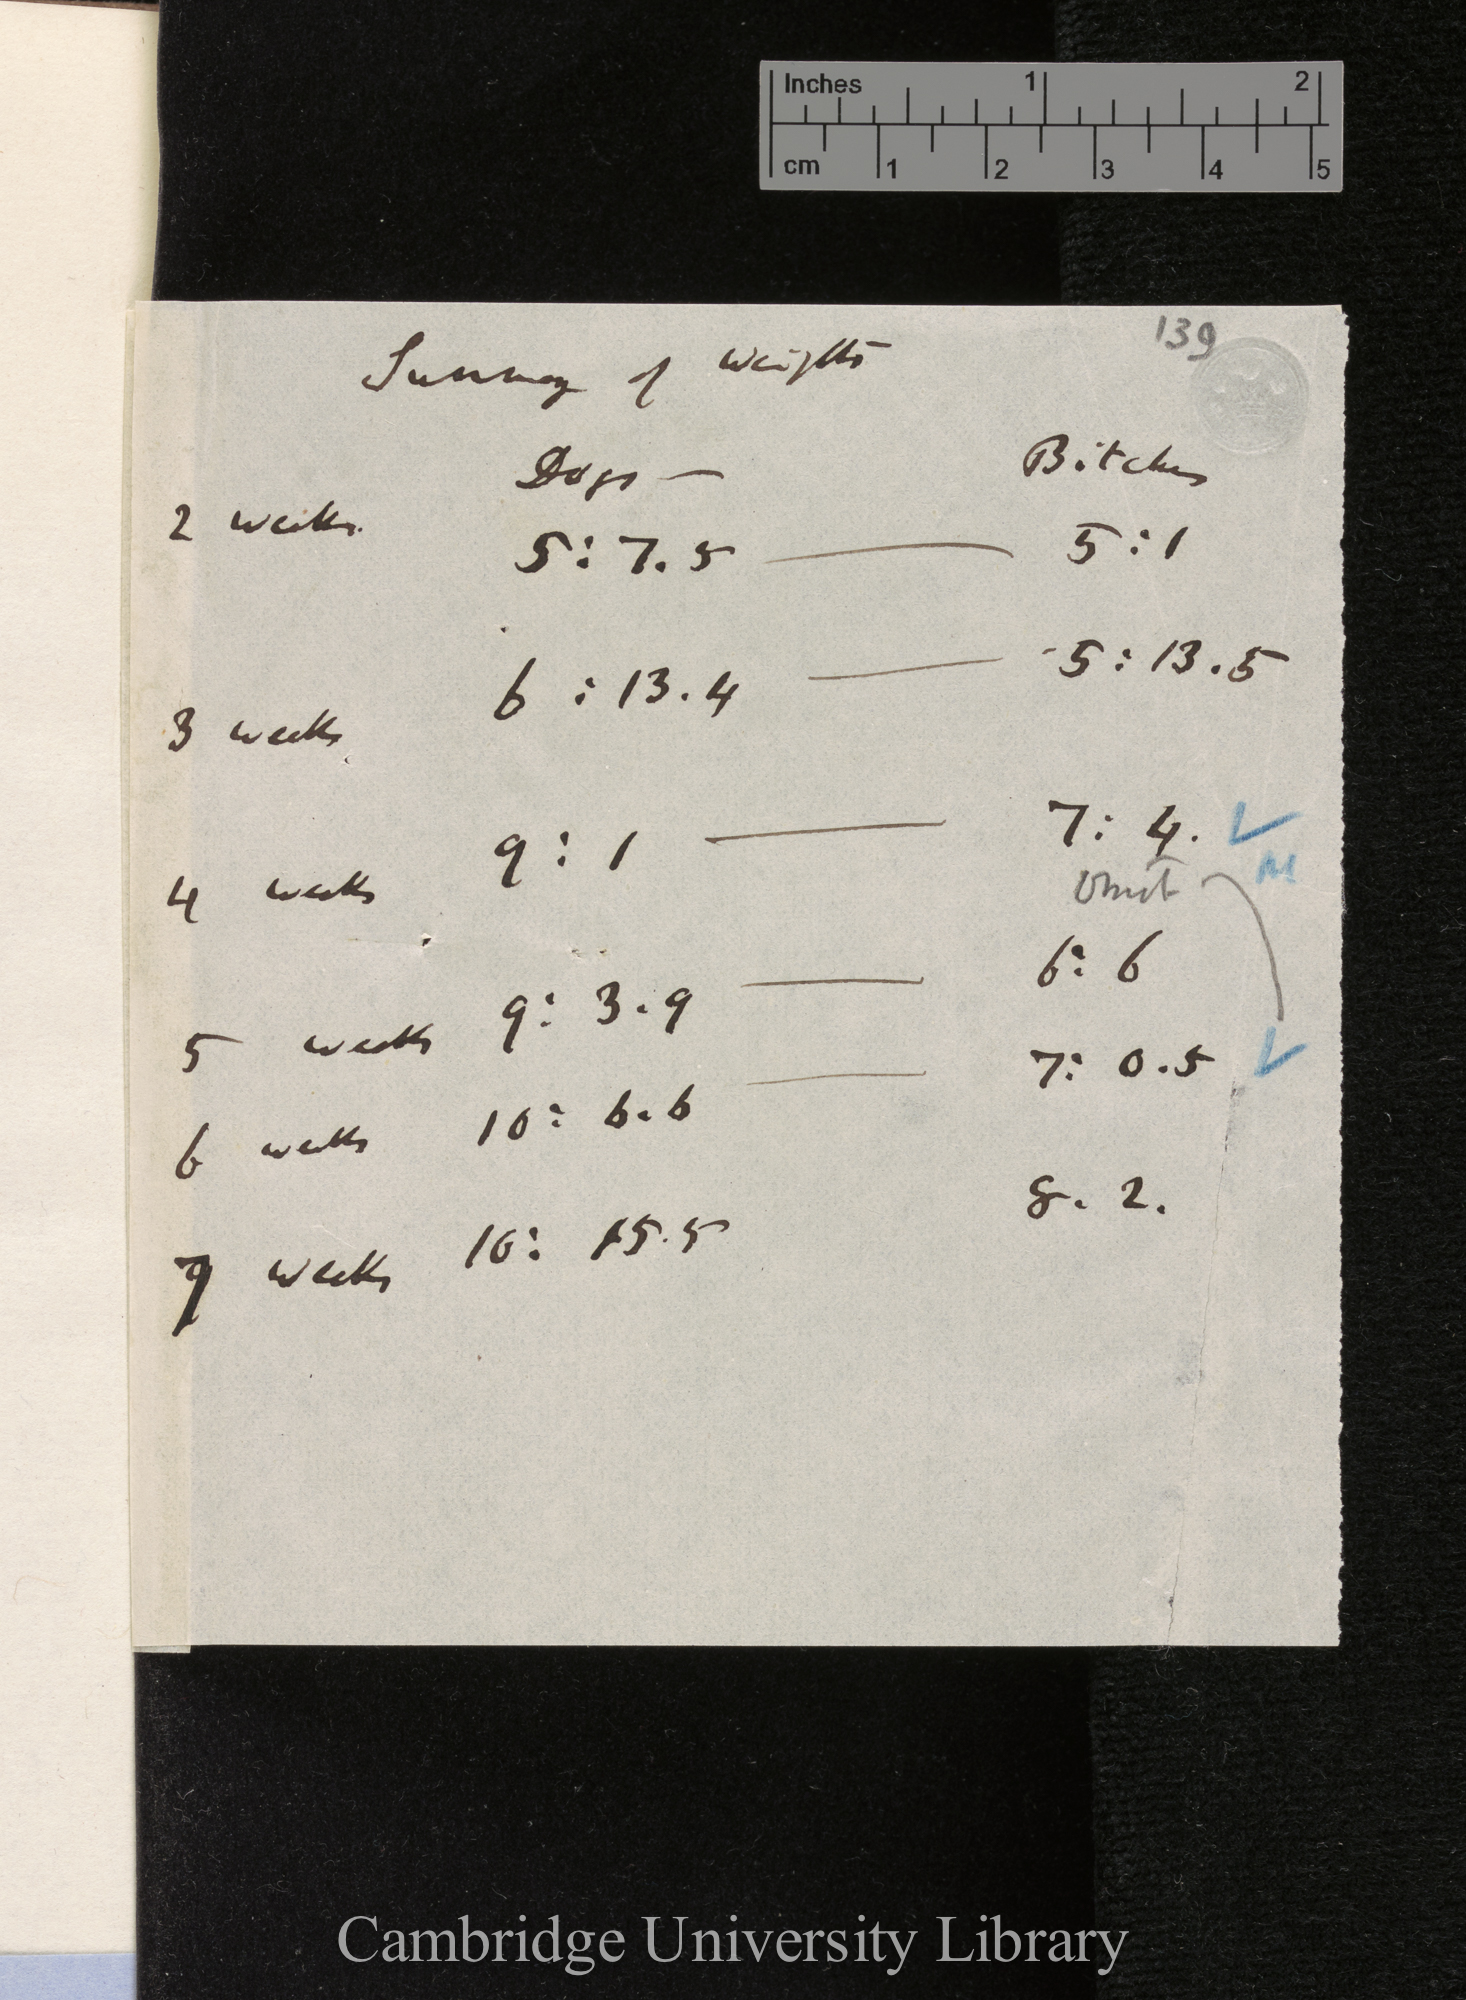 Inches 1 2
cm 1 2 3 4 5
139
Summary of Weights
Dogs — Bitches
2 weeks. 5: 7.5 — 5:1
3 weeks 6 : 13.4 — 5: 13.5
4 weeks 9 : 1 — 7: 4.
omit
5 weeks 9: 3.9 — 6: 6
6 weeks 10: 6.6 — 7: 0.5
7 weeks 10: 15.5 8. 2.
Cambridge University Library